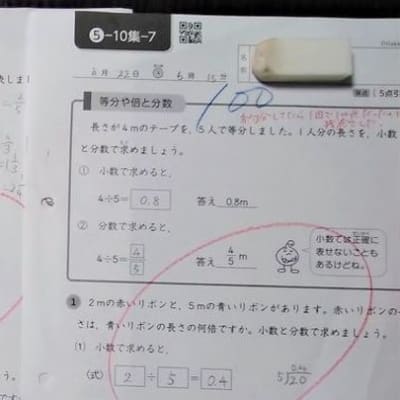 ⑤-10集-7
6月15日
100
5点引
等分や倍と分数
長さが4mのテープを、5人で等分しました。1人分の長さを、小数
と分数で求めましょう。
① 小数で求めると、
4÷5= 0.8 答え 0.8m
② 分数で求めると、
4÷5= 4/5 答え 4/5 m
小数では正確に
表せないことも
あるけどね。
1 2mの赤いリボンと、5mの青いリボンがあります。赤いリボンの
さは、青いリボンの長さの何倍ですか。小数と分数で求めましょう。
(1) 小数で求めると、
(式) 2 ÷ 5 = 0.4